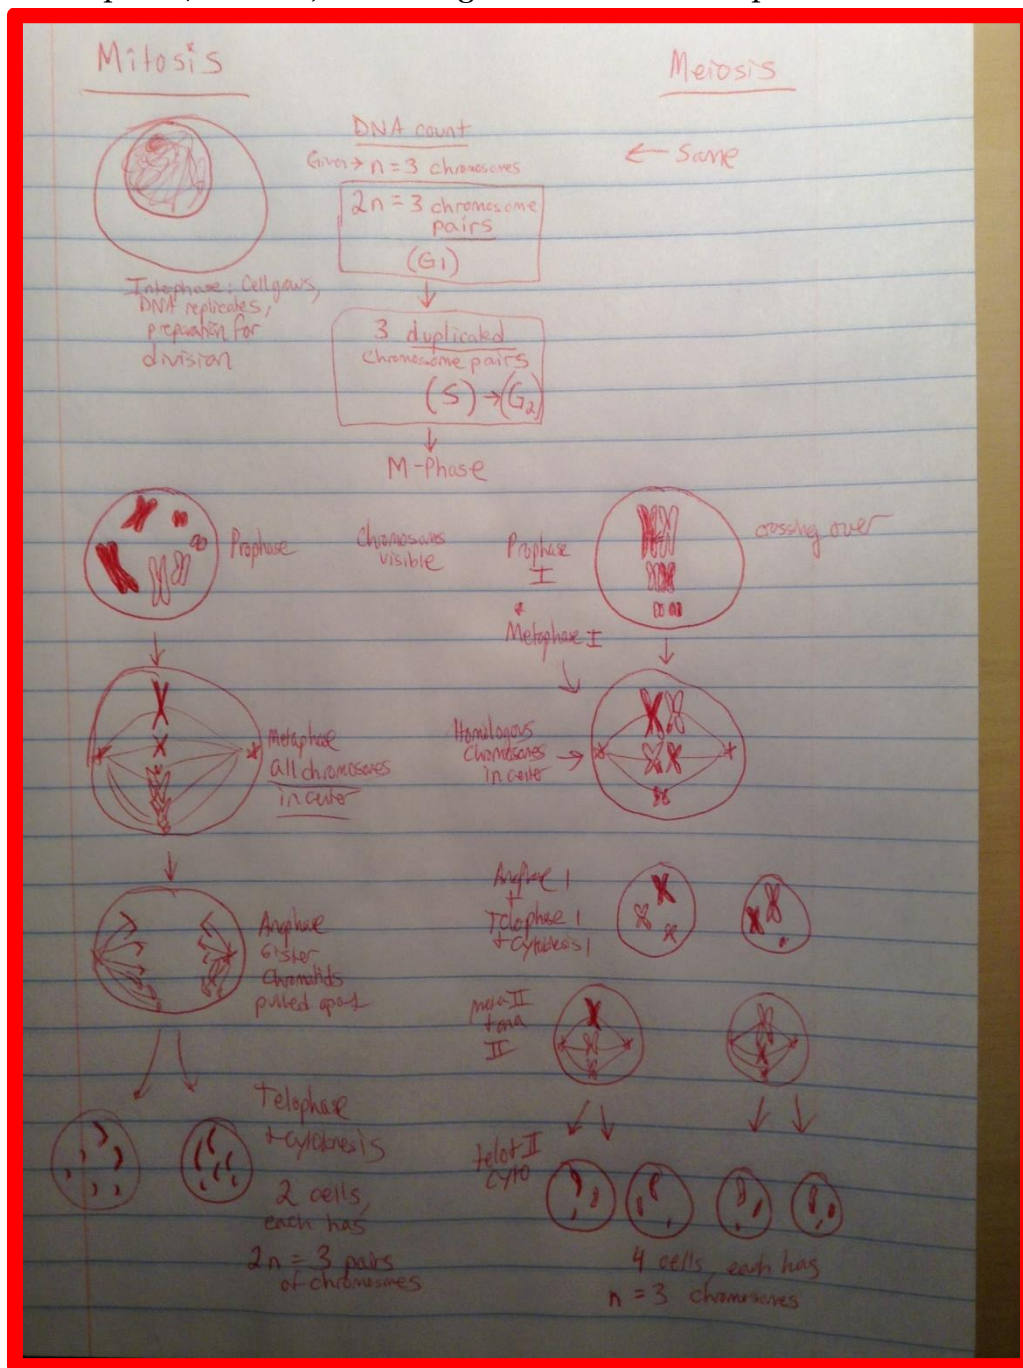 Mitosis
Meiosis
DNA count
Given → n = 3 chromosomes
← Same
2n = 3 chromosome
pairs
(G1)
Interphase: Cell grows,
DNA replicates,
preparation for
division
3 duplicated
chromosome pairs
(S) → (G2)
M-Phase
Prophase
Chromosomes
visible
Prophase
I
crossing over
Metaphase I
Metaphase
all chromosomes
in center
Homologous
Chromosomes
in center
Anaphase
sister
Chromatids
pulled apart
Anaphase 1
+
Telophase 1
+ Cytokinesis 1
meta II
+ ana
II
Telophase
+ cytokinesis
2 cells,
each has
2n = 3 pairs
of chromosomes
telo + II
cyto
4 cells, each has
n = 3 chromosomes